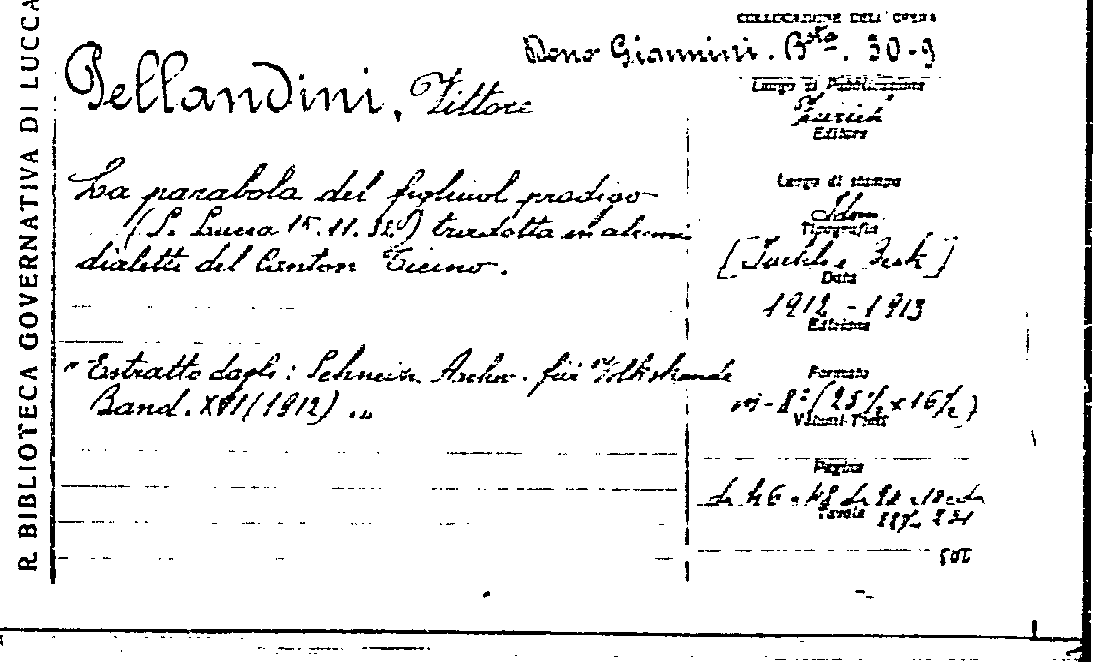 R. BIBLIOTECA GOVERNATIVA DI LUCCA
COLLOCAZIONE DELL'OPERA
Dono Giannini. Bta. 30-9
Pellandini, Vittore
Luogo di Pubblicazione
Zurich
Editore
La parabola del figliuol prodigo
(S. Lucca 15.11.32) tradotta in alcuni
dialetti del Canton Ticino.
Luogo di stampa
Idem
Tipografia
Data
1912 - 1913
Edizione
"Estratto dagli: Schweiz. Archiv. für Volkskunde
Band. XVI (1912)."
Formato
in-8° (25½ x 16½)
Volumi-Tomi
Pagine
Tavole